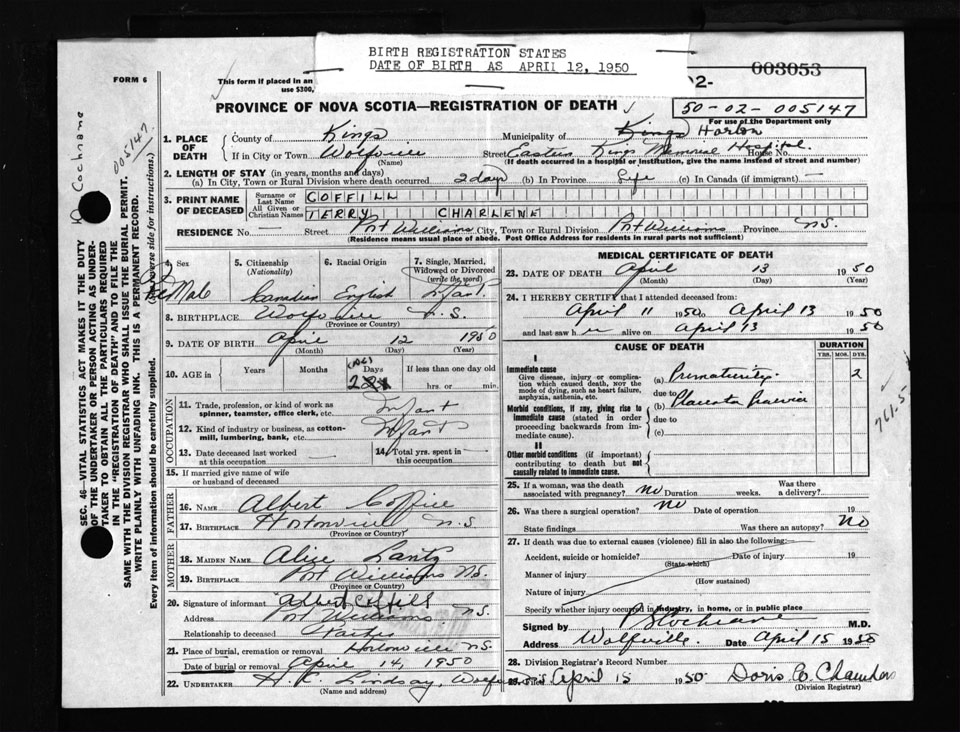 BIRTH REGISTRATION STATES
DATE OF BIRTH AS APRIL 12, 1950
FORM 6
This form if placed in an
use $300,
02-
003053
50-02-005147
For use of the Department only
PROVINCE OF NOVA SCOTIA—REGISTRATION OF DEATH
Cochrane
005147
1. PLACE OF DEATH
County of Kings
Municipality of Kings Horton
If in City or Town Wolfville (Name)
Street Eastern Kings Memorial Hospital. House No.
(If death occurred in a hospital or institution, give the name instead of street and number)
2. LENGTH OF STAY (in years, months and days)
(a) In City, Town or Rural Division where death occurred 2 days (b) In Province Life (c) In Canada (if immigrant) —
3. PRINT NAME OF DECEASED
Surname or Last Name COFFILL
All Given or Christian Names TERRY CHARLENE
RESIDENCE No. — Street Port Williams City, Town or Rural Division Port Williams Province N.S.
(Residence means usual place of abode. Post Office Address for residents in rural parts not sufficient)
4. Sex Fe Male
5. Citizenship (Nationality) Canadian
6. Racial Origin English
7. Single, Married, Widowed or Divorced (write the word) Infant
8. BIRTHPLACE Wolfville N.S.
(Province or Country)
9. DATE OF BIRTH April 12 1950
(Month) (Day) (Year)
10. AGE in Years Months Days If less than one day old
hrs. or min.
OCCUPATION
11. Trade, profession, or kind of work as spinner, teamster, office clerk, etc. Infant
12. Kind of industry or business, as cotton-mill, lumbering, bank, etc. Infant
13. Date deceased last worked at this occupation —
14. Total yrs. spent in this occupation —
15. If married give name of wife or husband of deceased
FATHER
16. NAME Albert Coffill
17. BIRTHPLACE Hortonville N.S.
(Province or Country)
MOTHER
18. MAIDEN NAME Alice Lantz
19. BIRTHPLACE Port Williams N.S.
(Province or Country)
20. Signature of informant Albert Coffill
Address Port Williams N.S.
Relationship to deceased Father
21. Place of burial, cremation or removal Hortonville N.S.
Date of burial or removal April 14, 1950
22. UNDERTAKER H. C. Lindsay, Wolfville
(Name and address)
MEDICAL CERTIFICATE OF DEATH
23. DATE OF DEATH April 13 1950
(Month) (Day) (Year)
24. I HEREBY CERTIFY that I attended deceased from:
April 11 1950 to April 13 1950
and last saw h er alive on April 13 1950
CAUSE OF DEATH
DURATION
YRS. MOS. DYS.
I
Immediate cause
Give disease, injury or complication which caused death, not the mode of dying, such as heart failure, asphyxia, asthenia, etc.
(a) Prematurity 2
due to
Morbid conditions, if any, giving rise to immediate cause (stated in order proceeding backwards from immediate cause).
(b) Placenta Praevia
due to
(c)
II
Other morbid conditions (if important) contributing to death but not causally related to immediate cause.
761.5
25. If a woman, was the death associated with pregnancy? No Duration weeks. Was there a delivery?
26. Was there a surgical operation? No Date of operation 19
State findings Was there an autopsy? No
27. If death was due to external causes (violence) fill in also the following:
Accident, suicide or homicide? Date of injury 19
(State which)
Manner of injury
(How sustained)
Nature of injury
Specify whether injury occurred in industry, in home, or in public place
Signed by B Cochrane M.D.
Address Wolfville. Date April 15 1950
28. Division Registrar's Record Number
29. Filed April 15 1950 Doris E. Chambers
(Division Registrar)
SEC. 46—VITAL STATISTICS ACT MAKES IT THE DUTY
OF THE UNDERTAKER OR PERSON ACTING AS UNDER-
TAKER TO OBTAIN ALL THE PARTICULARS REQUIRED
IN THE "REGISTRATION OF DEATH" AND TO FILE THE
SAME WITH THE DIVISION REGISTRAR WHO SHALL ISSUE THE BURIAL PERMIT.
WRITE PLAINLY WITH UNFADING INK. THIS IS A PERMANENT RECORD.
Every item of information should be carefully supplied. reverse side for instructions.)